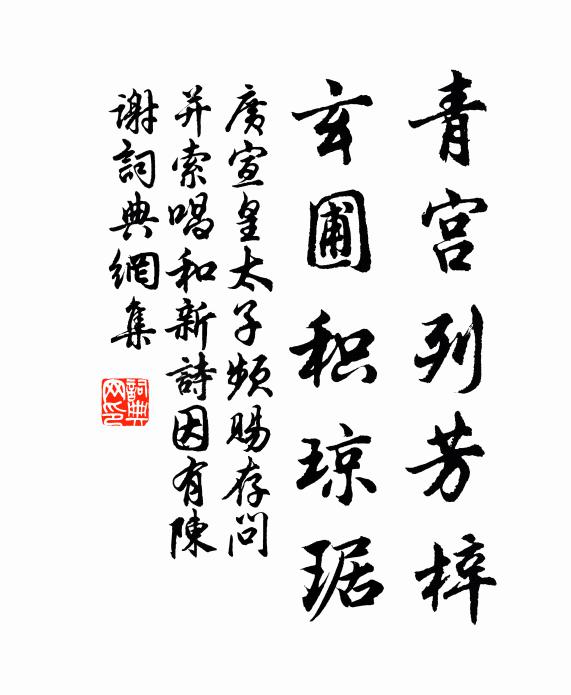 青宫列芳梓
玄圃积琼琚
廣宣皇太子頻賜存問
并索唱和新詩因有陳
謝詞典網集
詞典
网印